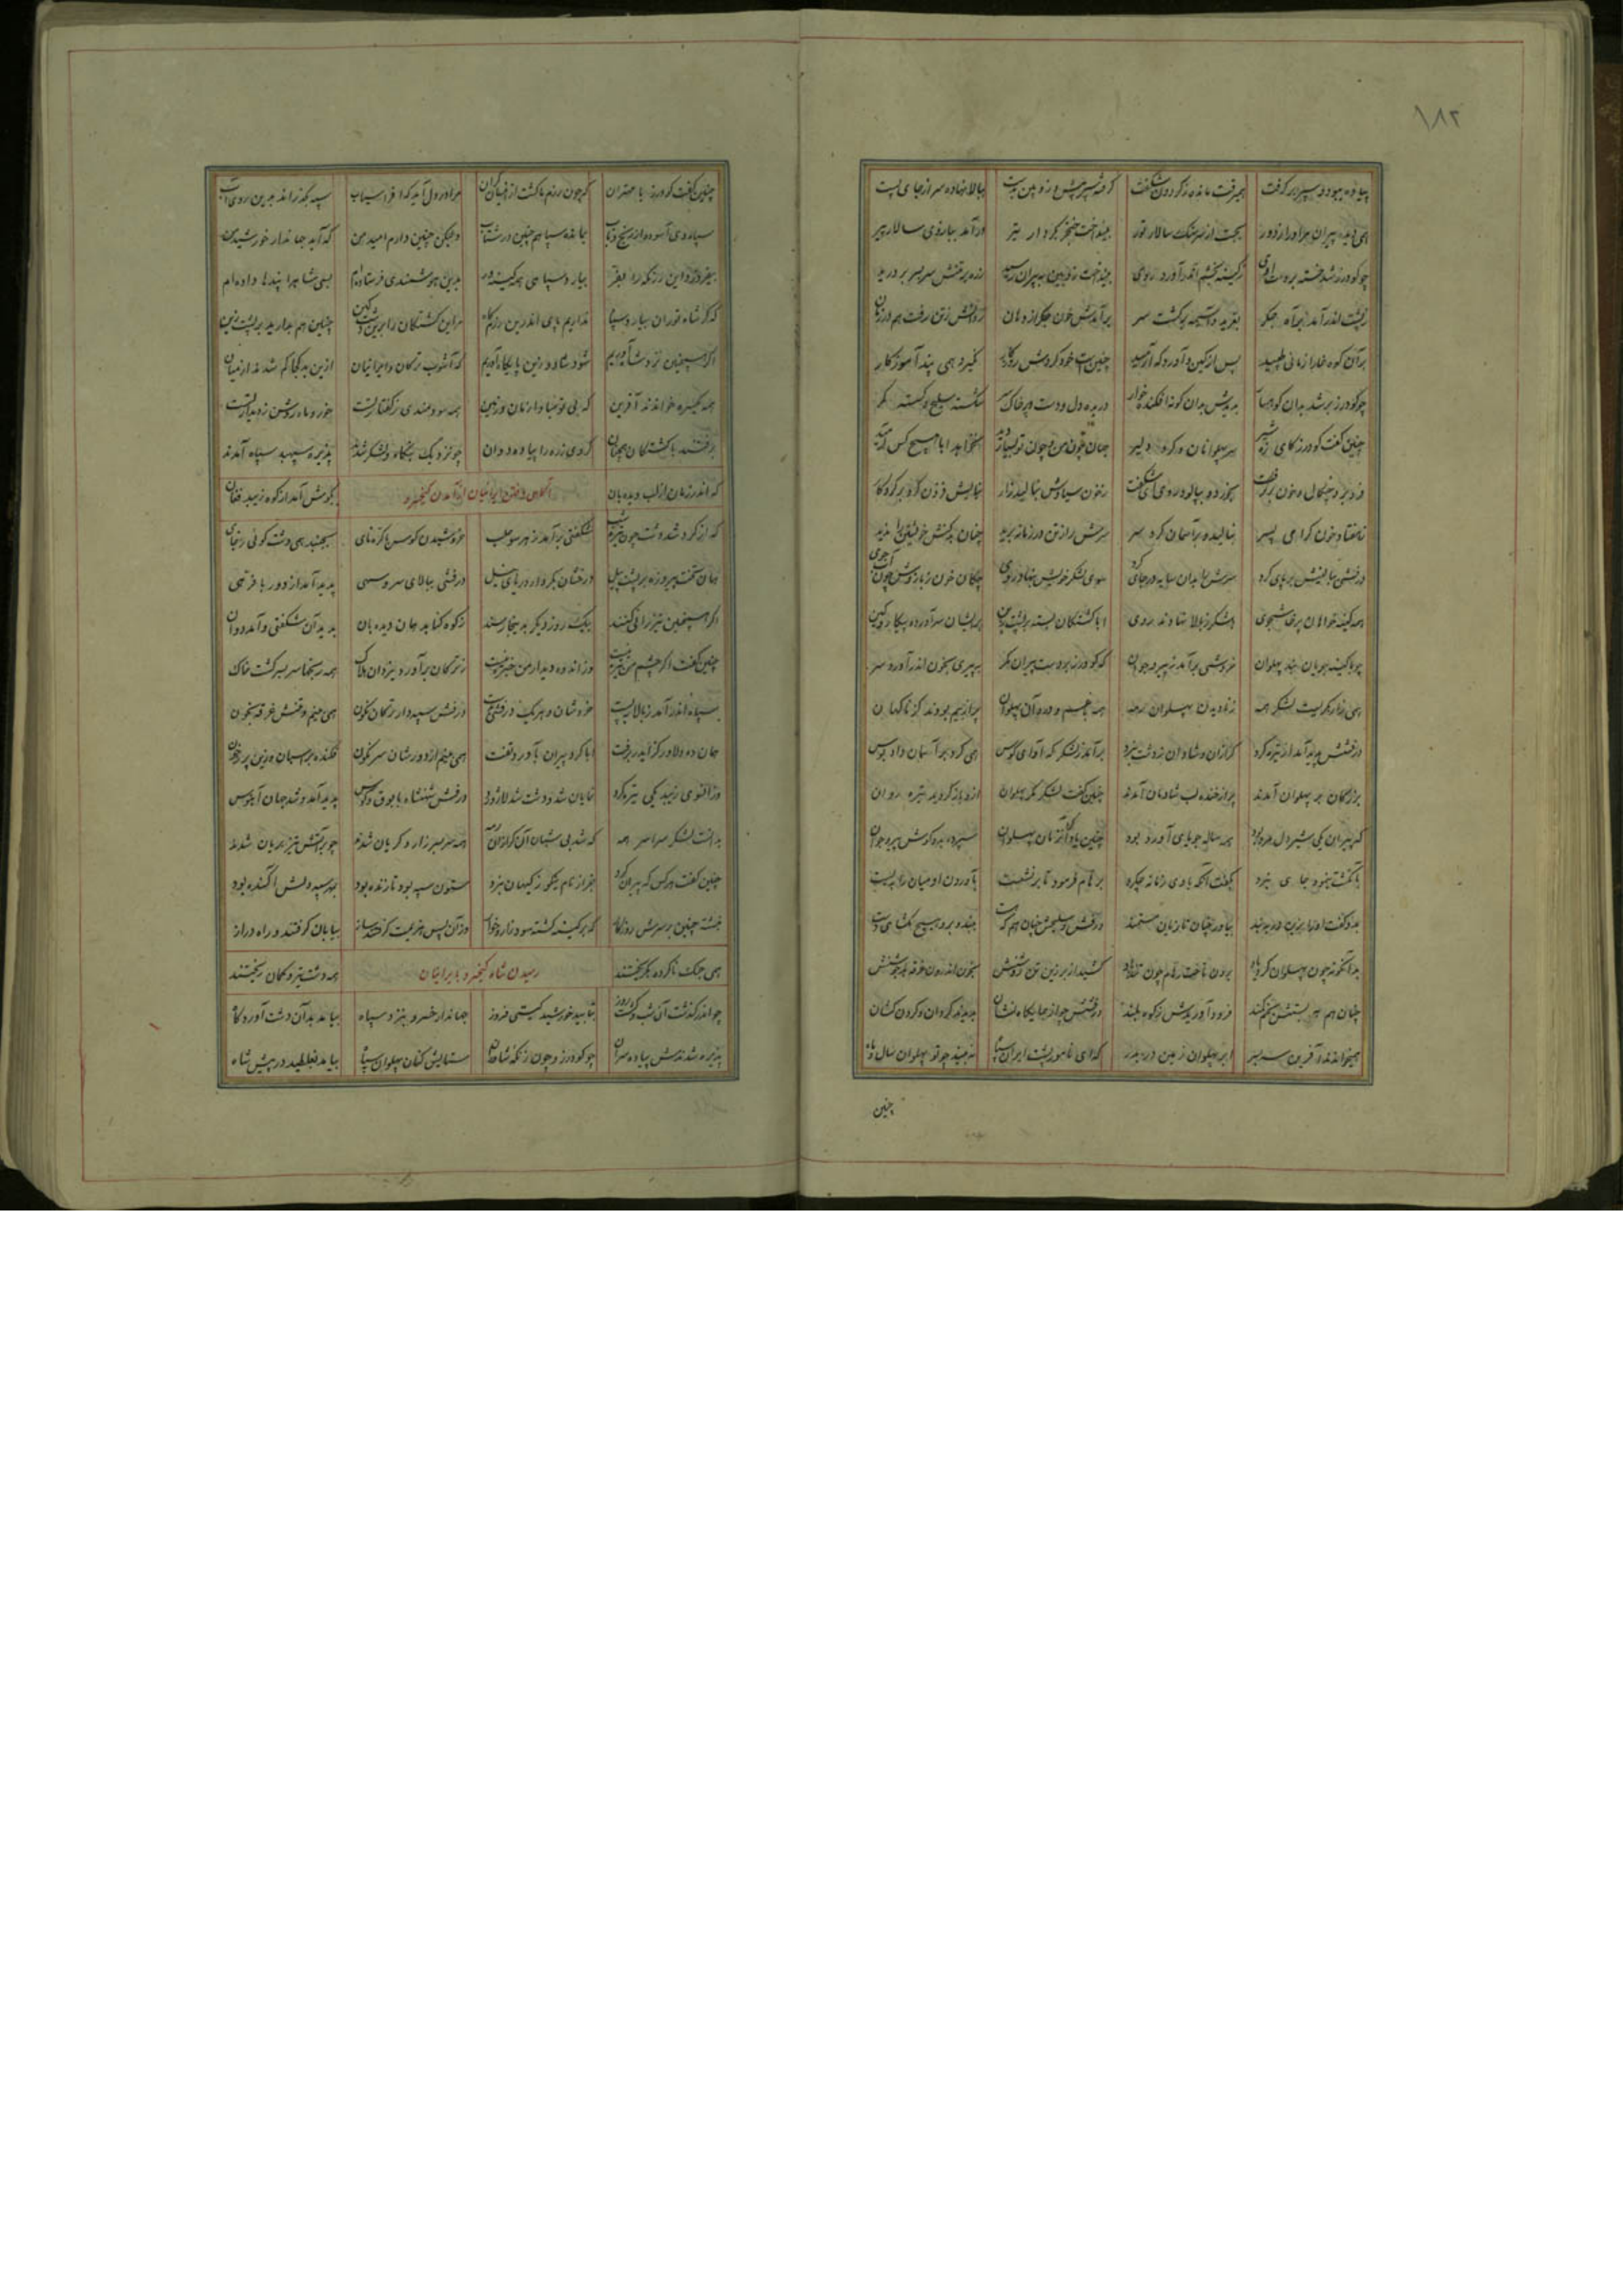 ۱۸۲
پیاده ببود و سپر بر گرفت همی رفت مانده ز گردون شگفت گرفته سپر پیش و زوبین بدست ببالا نهاده سر از جای پست
همی دید پیران مر او را ز دور بجست از سر سنگ سالار تور بینداخت خنجر بکردار تیر درآمد ببازوی سالار پیر
چو گودرز شد خسته بر دست اوی ز کینه بخشم اندرآورد روی بینداخت زوبین به پیران رسید زره بر تنش سربسر بردرید
ز پشت اندر آمد براه جگر بغرید و آسیمه برگشت سر برآمدش خون جگر از دهان روانش ز تن رفت هم در زمان
بر آن کوه خارا زمانی طپید پس از کین و آوردگه آرمید چنین است خود گردش روزگار نگیرد همی پند آموزگار
چو گودرز بر شد بدان کوهسار بدیدش بدان گونه افکنده خوار دریده دل و دست و بر خاک سر شکسته سلیح و گسسته کمر
چنین گفت گودرز کای نره شیر سر پهلوانان و گرد دلیر جهان چون من و چون تو بسیار دید نخواهد ابا هیچ کس آرمید
فرو برد چنگال و خون برگرفت بخورد و بیالود روی ای شگفت ز خون سیاوش بنالید زار نیایش فزون کرد بر کردگار
ز هفتاد خون گرامی پسر بنالید بر آسمان کرد سر سرش را ز تن در زمانه برید چنان بدکنش خویشتن را ندید
درفشی ببالینش بر پای کرد سرش را بدان سایه در جای کرد سوی لشکر خویش بنهاد روی چکان خون ز بازوش چون آب جوی
همه کینه خواهان پرخاشجوی ز بالا بلشکر نهادند روی ابا کشتگان بسته بر پشت زین بریشان سرآورده پیکار و کین
چو با کینه جویان نبد پهلوان خروشی برآمد ز پیر و جوان که گودرز بر دست پیران مگر به پیری بخون اندرآورد سر
همی زار بگریست لشکر همه ز نادیدن پهلوان رمه
درفشش پدید آمد از تیره گرد گرازان و شادان ز دشت نبرد برآمد ز لشکرگه آوای کوس همی گرد بر آسمان داد بوس
بزرگان بر پهلوان آمدند پر از خنده لب شادمان آمدند چنین گفت لشکر مگر پهلوان ازو باز گردید تیره روان
که پیران یکی شیردل مرد بود همه ساله جویای آورد بود چنین یاد کرد آن زمان پهلوان سپرده بدو گوش پیر و جوان
بانگشت بنمود جای نبرد بگفت آنکه با وی زمانه چه کرد برهام فرمود تا برنشست بآوردن او میان را ببست
بدو گفت او را بزین بر ببند بیاور چنان تازیان سمند درفش و سلیحش چنان هم که هست ببند و برو هیچ مگشای دست
بدانگونه چون پهلوان کرد یاد برون تاخت رهام چون تندباد کشید از بر زین تن روشنش بخون اندرون غرقه بد جوشنش
چنان هم ببستش بخم کمند فرود آوریدش ز کوه بلند درفشش چو از جایگاه نشان بدیدند گردان و گردن کشان
همی خواندند آفرین سربسر ابر پهلوان زمین در بدر که ای نامور پشت ایران سپاه نه بیند چو تو پهلوان سال و ماه
چنین
چنین گفت گودرز با مهتران که چون رزم ما گشت زینسان گران مرا در دل آید که افراسیاب سپه بگذراند بدین روی آب
سپاه وی آسوده از رنج و تاب بمانده سپاهم چنین در شتاب ولیکن چنین دارم امید من که آید جهاندار خورشید من
بیفروزد این رزمگه را بفر بیارد سپاهی همه کینه ور بدین هوشمندی فرستاده‌ام بسی شاه را پندها داده‌ام
که گر شاه توران بیارد سپاه نداریم پای اندرین رزمگاه مر این کشتگان را برین دشت کین چنین هم بدارید بر پشت زین
اگر همچنین نزد شاه آوریم شود شاد و زین پایگاه آوریم که آشوب ترکان و ایرانیان ازین بد کجا گم شد از میان
همه یکسره خواندند آفرین که بی تو مبادا زمان و زمین همه سودمندی ز گفتار تست خور و ماه روشن ز دیدار تست
برفتند با کشتگان همچنان گروی زره را پیاده دوان چو نزدیک بنگاه و لشکر شدند پذیره سپهبد سپاه آمدند
که اندر زمان از لب دیده‌بان آگاهی یافتن ایرانیان از آمدن کیخسرو بگوش آمد از کوه زیبد فغان
که از گرد شد دشت چون تیره شب شگفتی برآمد ز هر سو جلب خروشیدن کوس با کرنای بجنبد همی دشت گوئی ز جای
همان تخت پیروزه بر پشت پیل درفشان بکردار دریای نیل درفشی ببالای سرو سهی پدید آمد از دور با فرهی
ز کوه کنابد همان دیده‌بان بدید آن شگفتی و آمد دوان
چنین گفت اگر چشم من تیره نیست وز اندوه دیدار من خیره نیست ز ترکان برآورد یزدان هلاک همه رنجها سربسر گشت خاک
سپاه اندر آمد ز بالا بپست خروشان و هر یک درفشی بدست درفش سپهدار ترکان نگون همی بینم و تنش غرقه بخون
همان ده دلاور کز ایدر برفت ابا گرد پیران بآورد تفت همی بینم از دورشان سرنگون فکنده بر اسپان و زین پر ز خون
وز آنسوی زیبد یکی تیره گرد نمایان شد و دشت شد لاژورد درفش شهنشاه با بوق و کوس پدید آمد و شد جهان آبنوس
بدانست لشکر سراسر همه که شد بی شبان آن گرازان رمه همه سربسر زار و گریان شدند چو بر آتش تیز بریان شدند
چنین گفت هر کس که پیران گرد جز از نام نیکو ز گیهان نبرد ستون سپه بود تا زنده بود بمهر سپه دلش آگنده بود
نبشته چنین بر سرش روزگار که بر کینه کشته شود زار و خوار وز آن پس هزیمت گرفتند ساز بیابان گرفتند و راه دراز
همی جنگ ناکرده بگریختند رسیدن شاه کیخسرو با ایرانیان همه دشت تیر و کمان ریختند
چو اندر گذشت آن شب و گشت روز بتابید خورشید گیتی فروز جهاندار خسرو بنزد سپاه بیامد بدان دشت آوردگاه
پذیره شدندش پیاده سران چو گودرز و چون زنگه شاوران ستایش کنان پهلوان سپاه بیامد بغلطید در پیش شاه